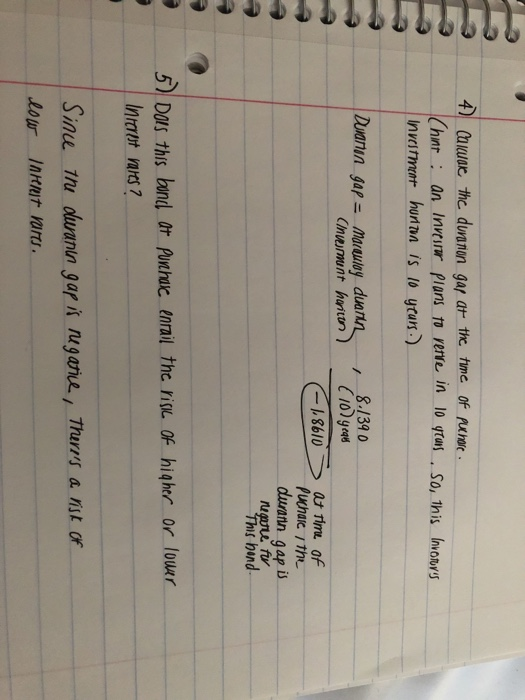 4) Calculate the duration gap at the time of purchase.
(hint : an investor plans to retire in 10 years. So, this investor's
investment horizon is 10 years.)
Duration gap = Macaulay duration , 8.1390
(investment horizon) (10) years
-1.8610 at time of
purchase, the
duration gap is
negative for
this bond.
5) Does this bond at purchase entail the risk of higher or lower
Interest rates?
Since the duration gap is negative, there's a risk of
low interest rates.